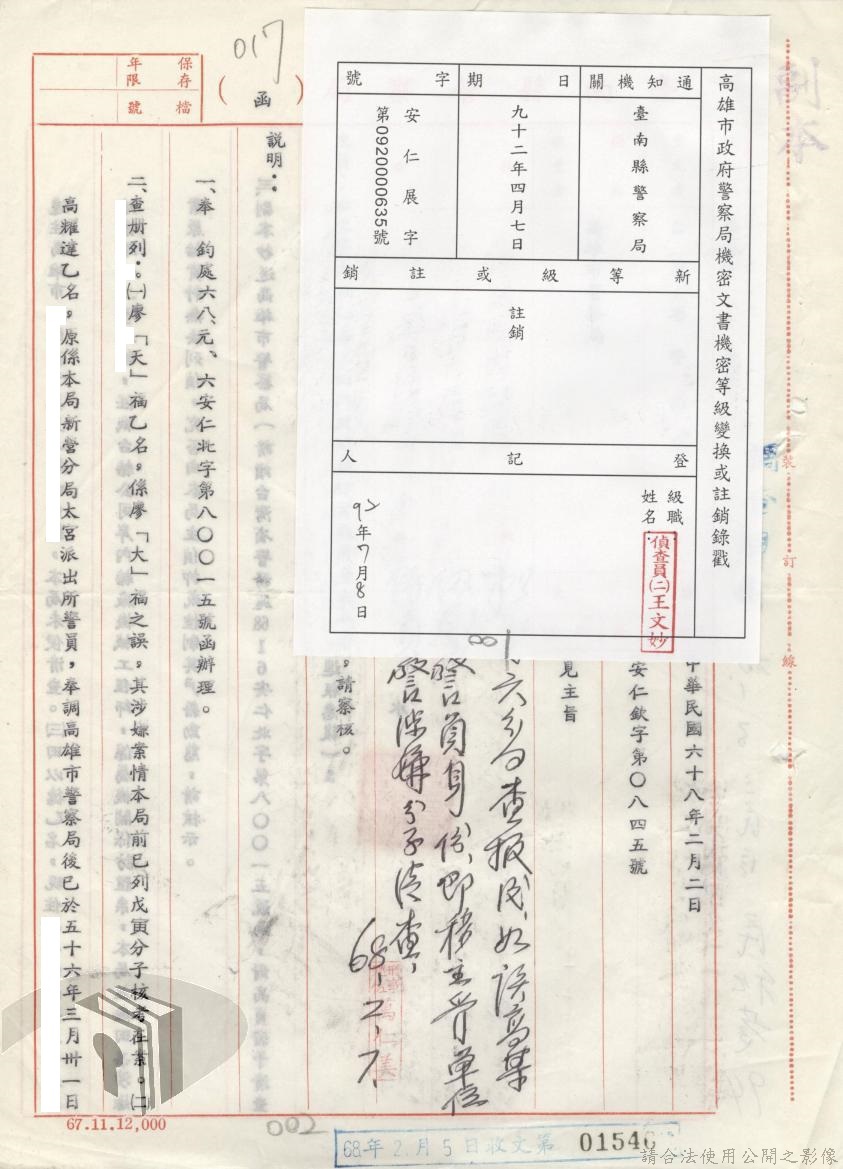 高本
017
保存年限
檔號
（函）
高雄市政府警察局機密文書機密等級變換或註銷錄戳
通知機關
日期
字號
臺南縣警察局
九十二年四月七日
安仁展字
第0920000635號
新等級或註銷
註銷
登記人
級職
姓名：
偵查員㈡王文妙
92年7月8日
裝
訂
線
中華民國六十八年二月二日
安仁欽字第〇八四五號
見主旨
。請察核。
說明：
一、奉 鈞處六八、元、六安仁北字第八〇〇一五號函辦理。
二、查册列：㈠廖「天」福乙名，係廖「大」福之誤，其涉嫌案情本局前已列戊寅分子核考在案。㈡
高耀達乙名，原係本局新營分局太宮派出所警員，奉調高雄市警察局後已於五十六年三月卅一日
警員身份，即移主管單位
68.2.7.
67.11.12,000
002
68年2月5日收文第
01546
請合法使用公開之影像